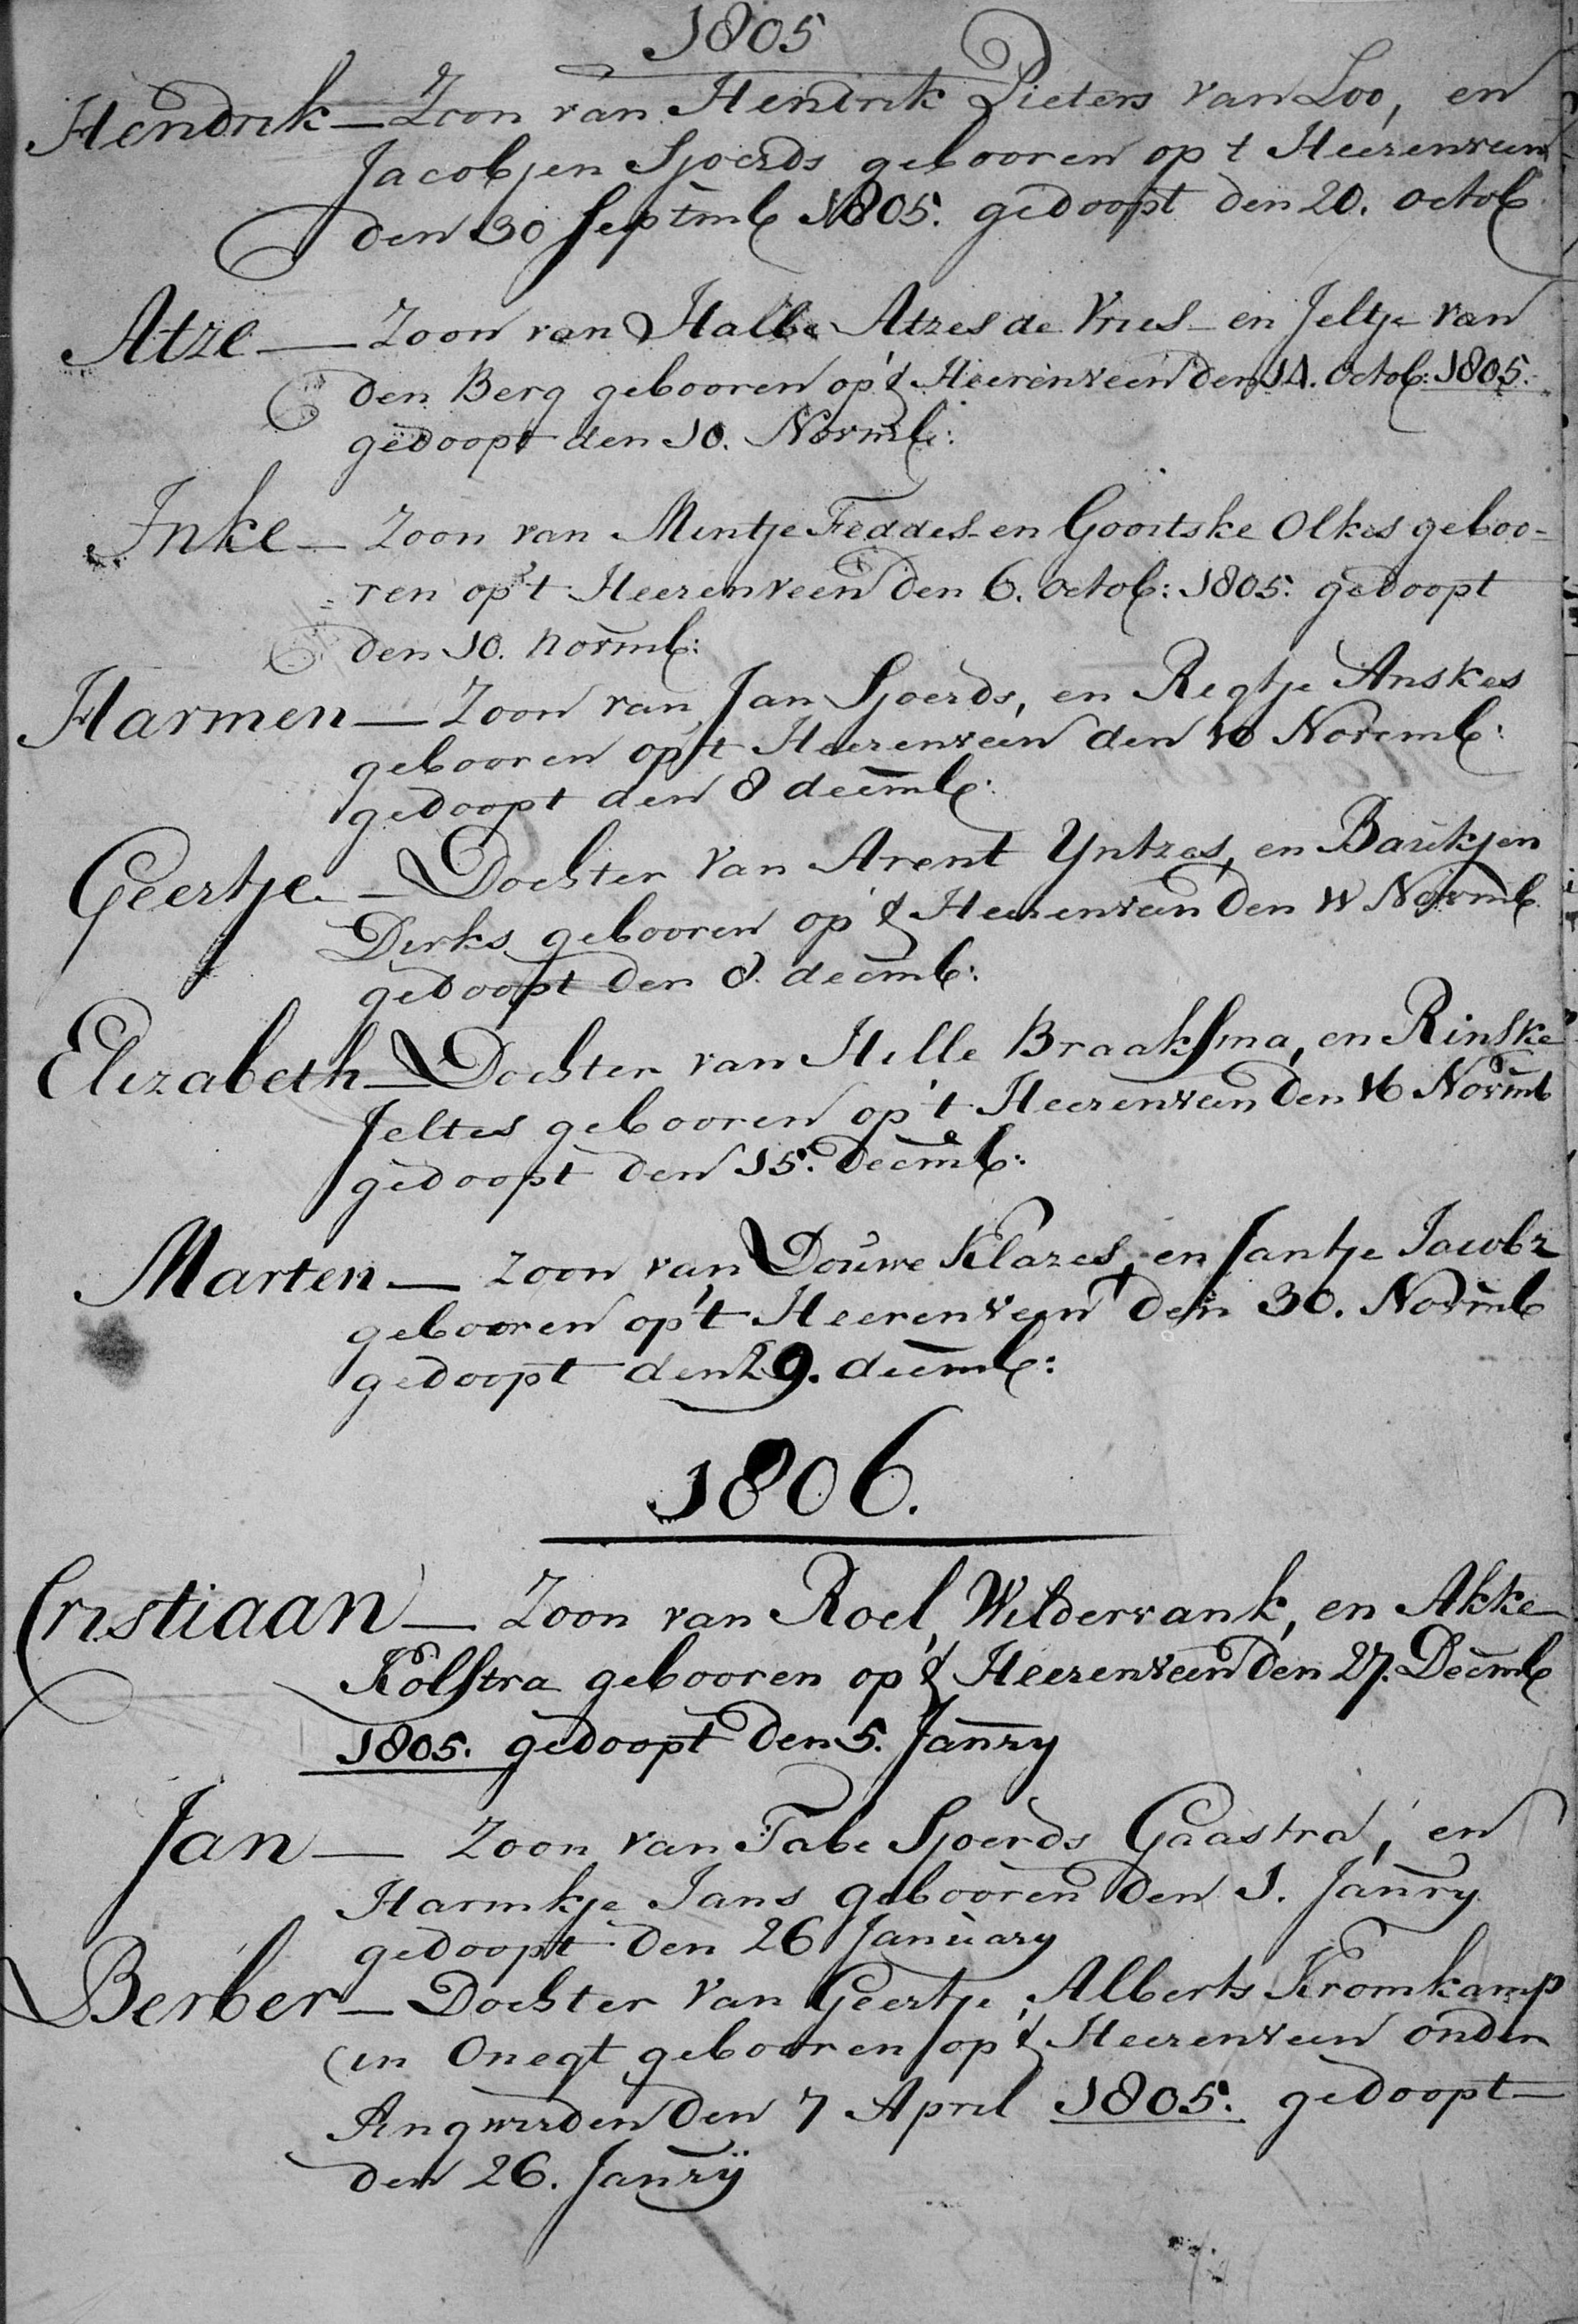 1805
Hendrik — Zoon van Hendrik Pieters van Loo, en
Jacobjen Sjoerds gebooren op t Heerenveen
den 30 Septmb 1805. gedoopt den 20. octob
Atze — Zoon van Halbe Atzes de Vries - en Jeltje van
den Berg gebooren op 't Heerenveen den 14. octob: 1805.
gedoopt den 10. Novmb:
Inke — Zoon van Mintje Feddes - en Gooitske Olkes geboo-
=ren op 't Heerenveen den 6. octob: 1805. gedoopt
den 10. novmb:
Harmen — Zoon van Jan Sjoerds, en Regtje Anskes
gebooren op 't Heerenveen den 10 Novemb:
gedoopt den 8 decmb:
Geertje — Dochter van Arent Yntzes, en Baukjen
Dirks gebooren op 't Heerenveen den Novmb
gedoopt den 8. decmb:
Elizabeth — Dochter van Hille Braaksma, en Rinske
Jeltes gebooren op 't Heerenveen den 16 Novmb
gedoopt den 15. decmb:
Marten — Zoon van Douwe Klazes, en Jantje Jacobz
gebooren op 't Heerenveen den 30. Novmb
gedoopt den 29. decmb:
1806.
Cristiaan — Zoon van Roel, Wildervank, en Akke
Kolstra gebooren op 't Heerenveen den 27. Decmb
1805. gedoopt den 5. Janry
Jan — Zoon van Tabe Sjoerds Gaastra, en
Harmkje Jans gebooren den 1. Janry
gedoopt den 26 January
Berber — Dochter van Geertje Alberts Kromkamp
(in Onegt gebooren op 't Heerenveen onder
Angwirden den 7 April 1805. gedoopt —
den 26. Janrÿ